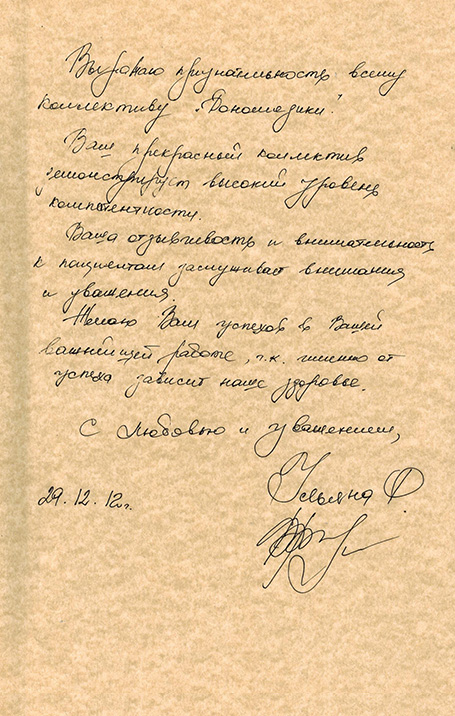 Выражаю признательность всему
коллективу „Дономедики".
Ваш прекрасный коллектив
демонстрирует высокий уровень
компетентности.
Ваша отзывчивость и внимательность
к пациентам заслуживает внимания
и уважения.
Желаю Вам успехов в Вашей
важнейшей работе, т.к. именно от
успеха зависит наше здоровье.
С любовью и уважением,
Ульяна Ф.
29.12.12г.